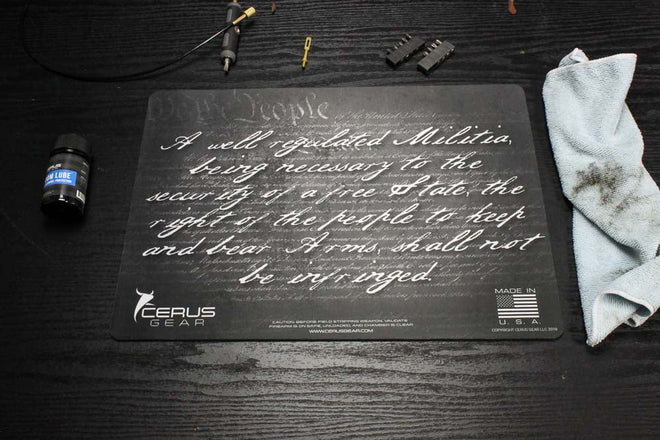 We The People
A well regulated Militia,
being necessary to the
security of a free State, the
right of the people to keep
and bear Arms, shall not
be infringed.
CERUS
GEAR
CAUTION: BEFORE FIELD STRIPPING WEAPON, VALIDATE
FIREARM IS ON SAFE, UNLOADED, AND CHAMBER IS CLEAR
WWW.CERUSGEAR.COM
MADE IN
U.S.A.
COPYRIGHT CERUS GEAR LLC 2016
LUBE